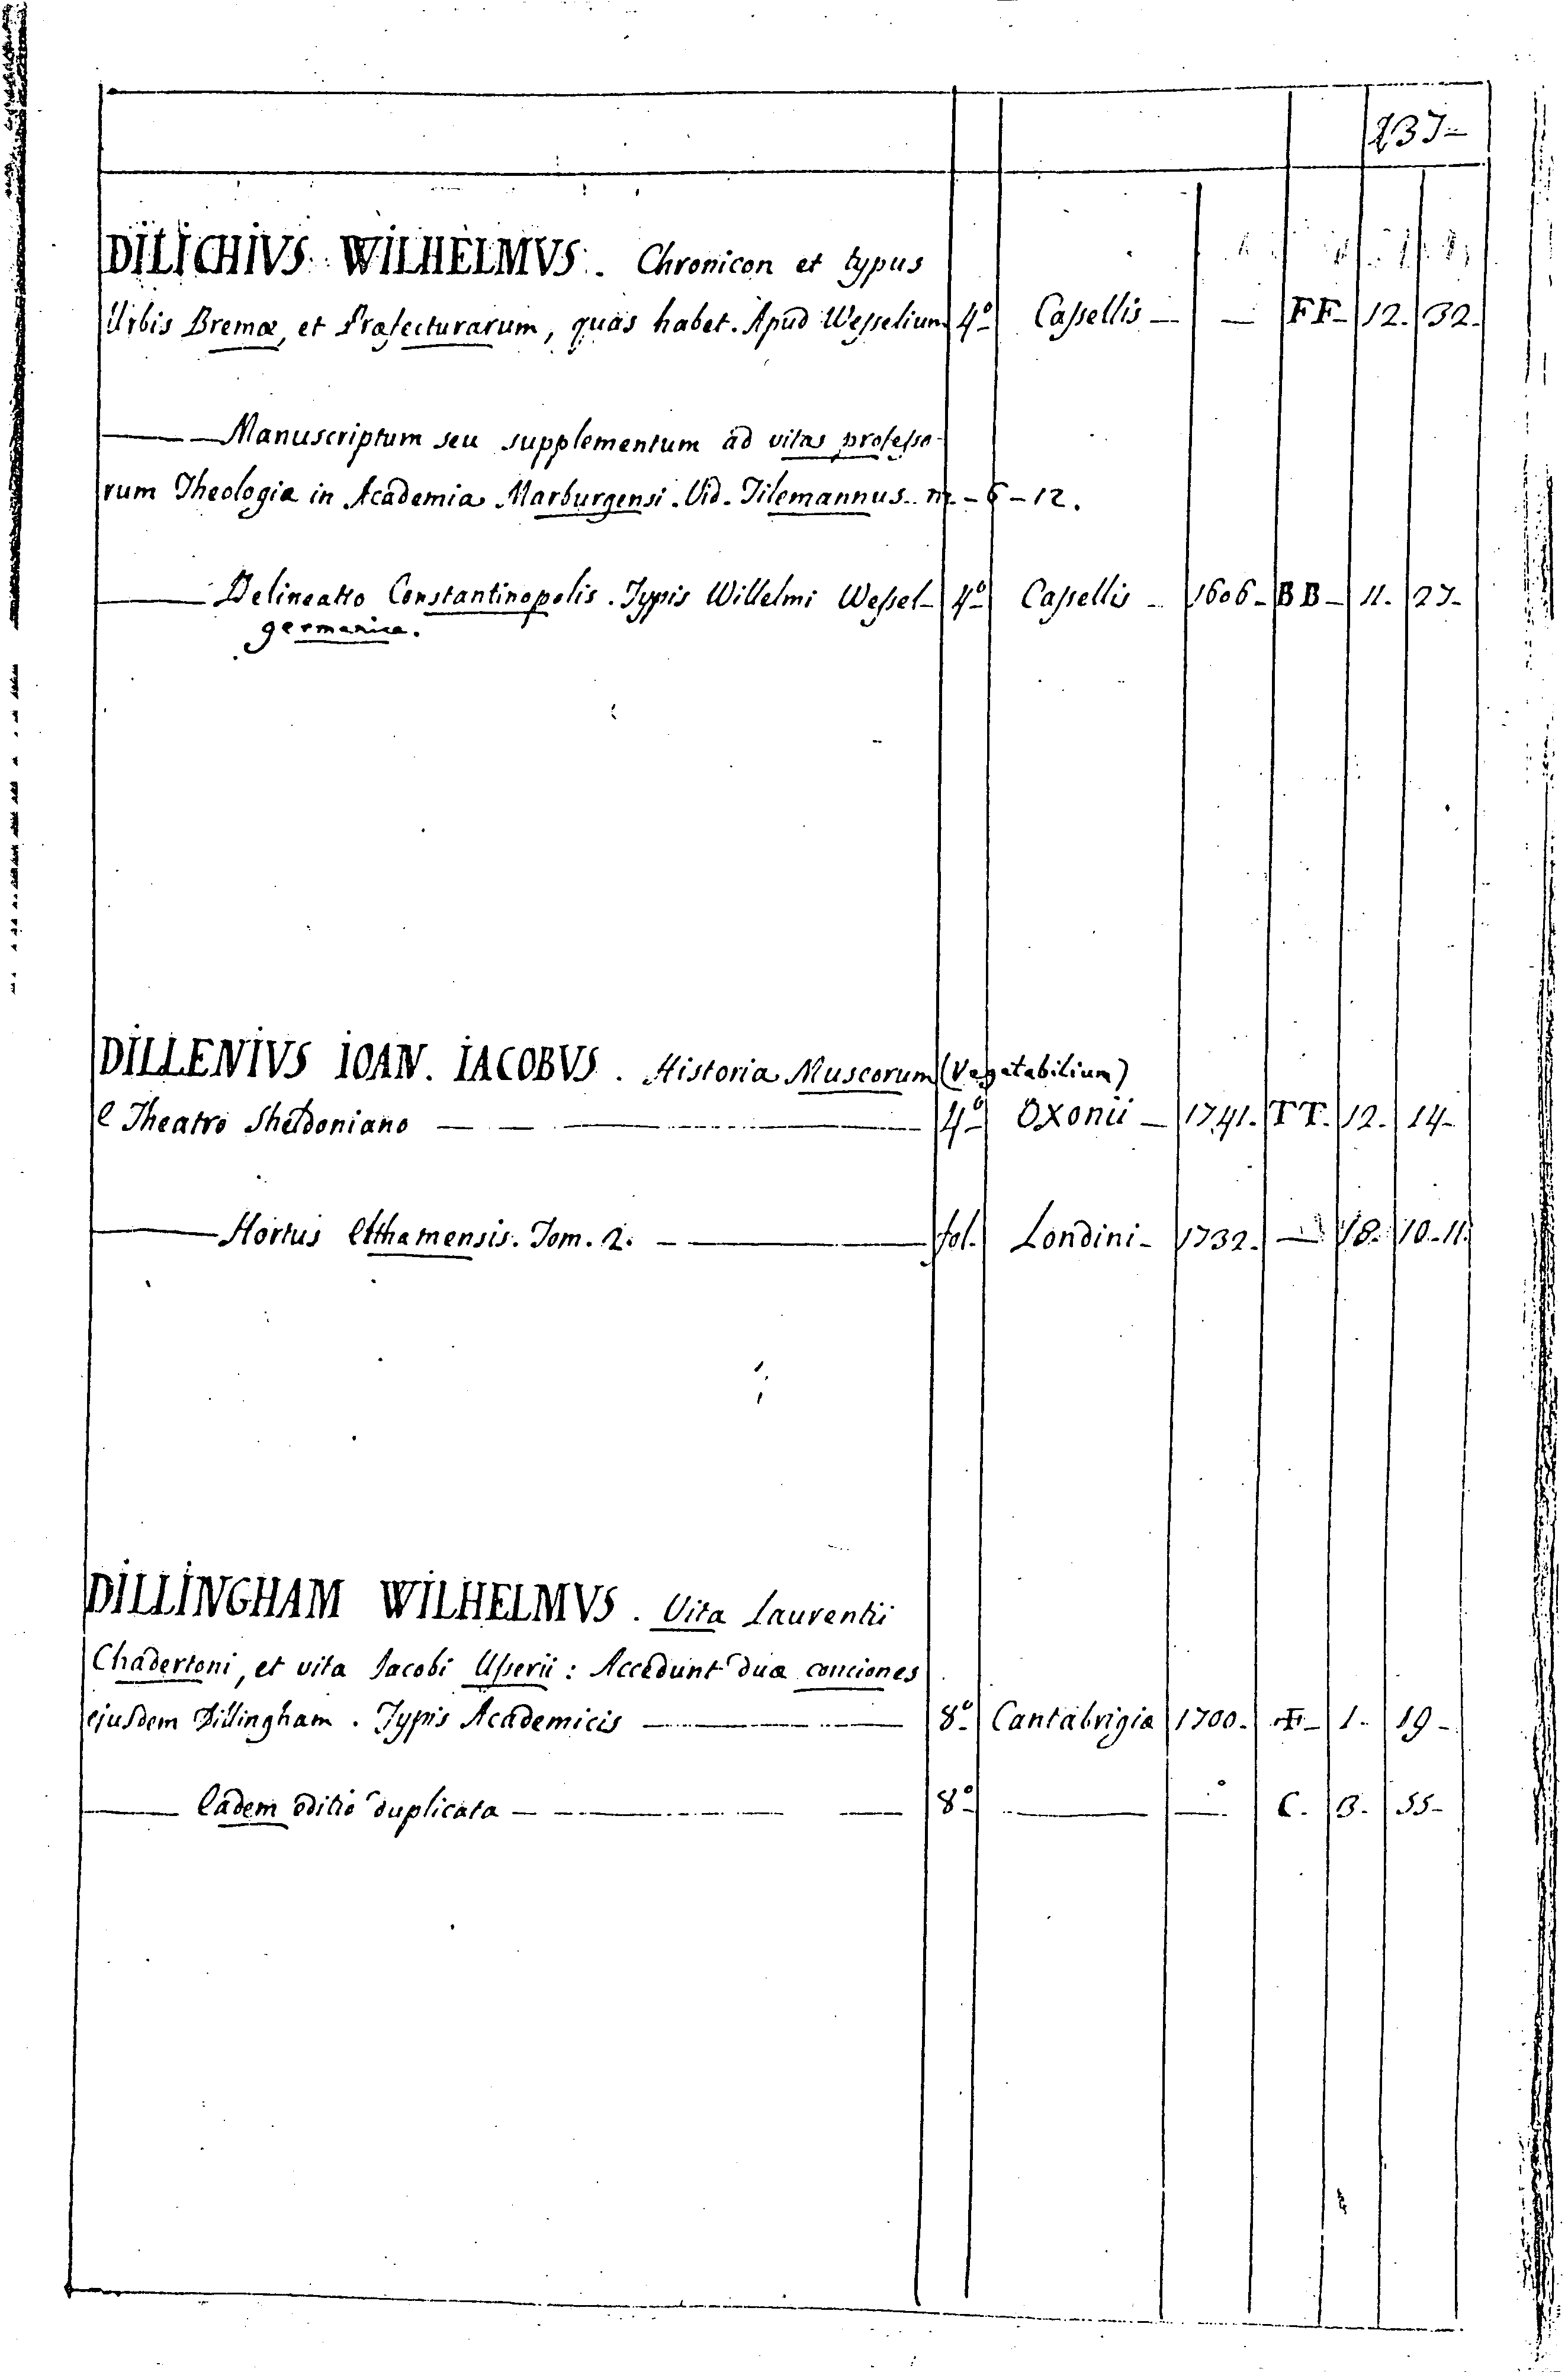 237-
DILICHIVS WILHELMVS. Chronicon et typus
Urbis Bremæ, et Præfecturarum, quas habet. Apud Wesselium 4º Cassellis — — FF- 12. 32.
—— Manuscriptum seu supplementum ad vitas professo-
rum Theologiæ in Academia Marburgensi. Vid. Tilemannus. m - 6 - 12.
—— Delineatio Constantinopolis. Typis Willelmi Wessel- 4º Cassellis - 1606- BB- 11. 27-
germanice.
DILLENIVS IOAN. IACOBVS. Historia Muscorum (Vegetabilium)
e Theatro Sheldoniano — 4º Oxonii - 1741. TT. 12. 14-
—— Hortus Elthamensis. Tom. 2. — fol. Londini- 1732. — 18. 10-11.
DILLINGHAM WILHELMVS. Vita Laurentii
Chadertoni, et vita Jacobi Usserii: Accedunt duæ conciones
ejusdem Dillingham. Typis Academicis — 8º Cantabrigiæ 1700. F- 1. 19-
—— Eadem editio duplicata — 8º — — C. 13. 55-